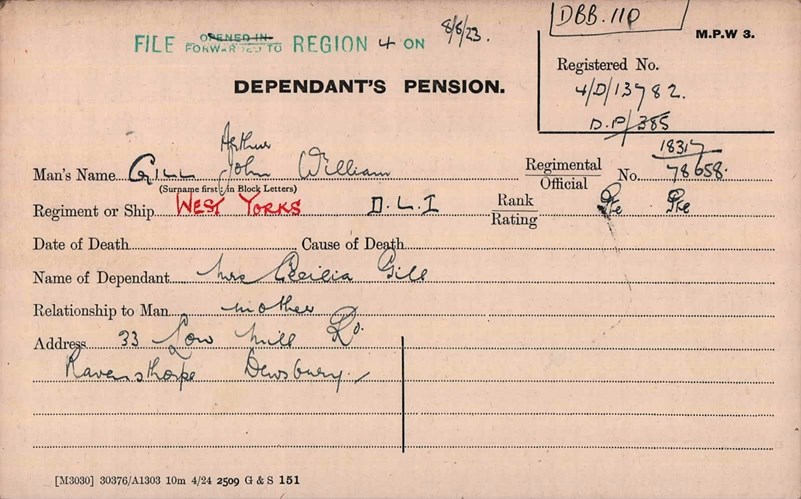 DBB. 110
M.P.W 3.
FILE OPENED IN FORWARDED TO REGION 4 ON 8/6/23.
DEPENDANT'S PENSION.
Registered No.
4/D/13782.
D.P/385
Arthur
18317
Man's Name GILL John William Regimental Official No. 78658.
(Surname first; in Block Letters)
Regiment or Ship WEST YORKS D.L.I Rank Rating Pte Pte
Date of Death Cause of Death
Name of Dependant Mrs Cecilia Gill
Relationship to Man mother
Address 33 Low Mill Rd.
Ravensthorpe Dewsbury.
[M3030] 30376/A1303 10m 4/24 2509 G & S 151